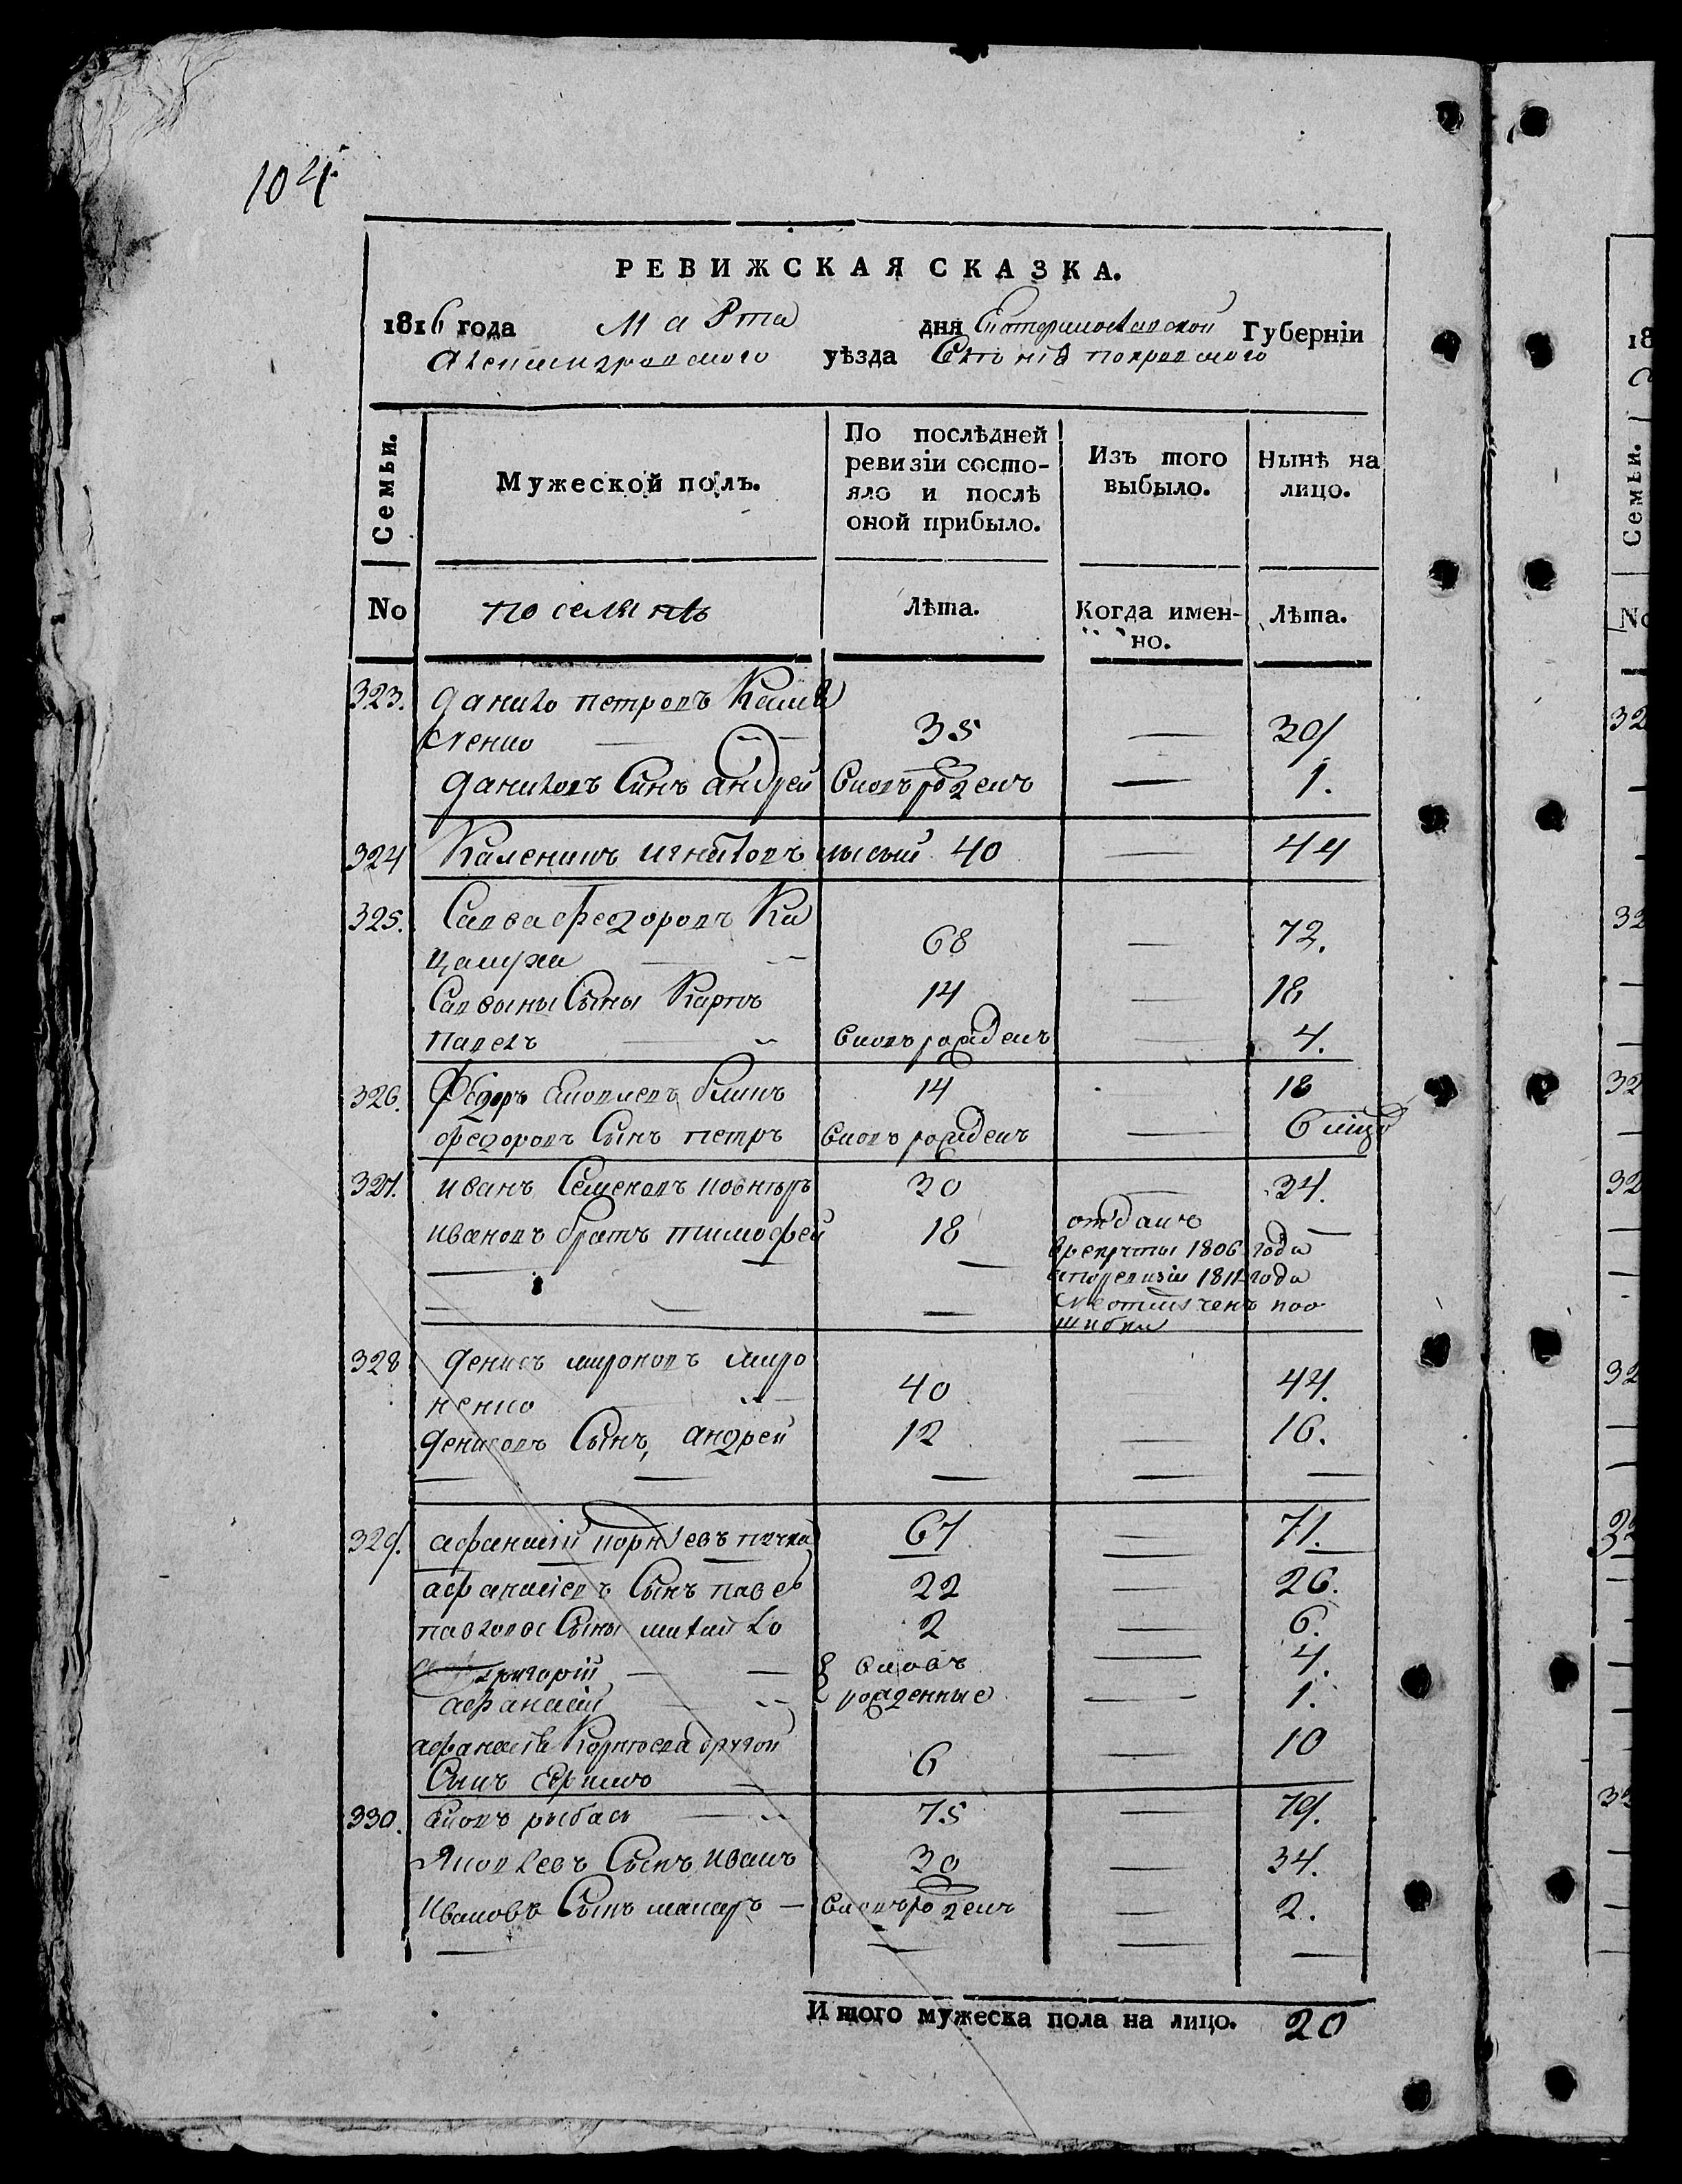 104.
РЕВИЖСКАЯ СКАЗКА.
1816 года Марта дня Екатеринославской Губерніи
уѣзда
Семьи.
Мужеской полъ.
По послѣдней
ревизіи состо-
яло и послѣ
оной прибыло.
Изъ того
выбыло.
Ныне на
лицо.
No
Лѣта.
Когда имен-
но.
Лѣта.
323. Данило Петровъ
35 — 39
Даниловъ Сынъ андрей вновь рожденъ — 1.
324 игнатовъ лысый 40 — 44
325. Савва Федоровъ Ка
цапуха 68 — 72.
Саввины Сыны Карпъ 14 — 18
Павелъ вновь рожденъ — 4.
326. Федоръ 14 — 18
Федоровъ Сынъ петръ вновь рожденъ —
327. иванъ Семеновъ 30 — 34.
ивановъ братъ тимофей 18 отданъ —
в рекруты 1806 года
а по ревизіи 1811 года
не отмѣченъ по о
шибки
328 Денисъ мироновъ миро
ненко 40 — 44.
Денисовъ Сынъ андрей 12 — 16.
329. афанасій корнѣевъ 67 — 71.
афанасіевъ Сынъ павелъ 22 — 26.
павловы Сыны михайло 2 — 6.
григорій — вновь — 4.
афанасій рожденные — 1.
афанасія Корнѣева другой
Сынъ ефимъ 6 — 10
330. Яковъ рыбасъ 75 — 79.
Яковлевъ Сынъ иванъ 30 — 34.
Ивановъ Сынъ макаръ — вновь рожденъ — 2.
Итого мужеска пола на лицо. 20